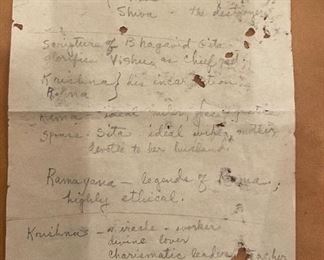 Shiva - the destroyer
Scripture of Bhagavid Gita
glorifies Vishnu as chief god;
Krishna } his incarnation
Rama
Rama - ideal
Spouse - Sita ideal wife, mother
devote to her husband.
Ramayana - legends of Rama,
highly ethical.
Krishna - miracle - worker
divine lover
charismatic leader, teacher